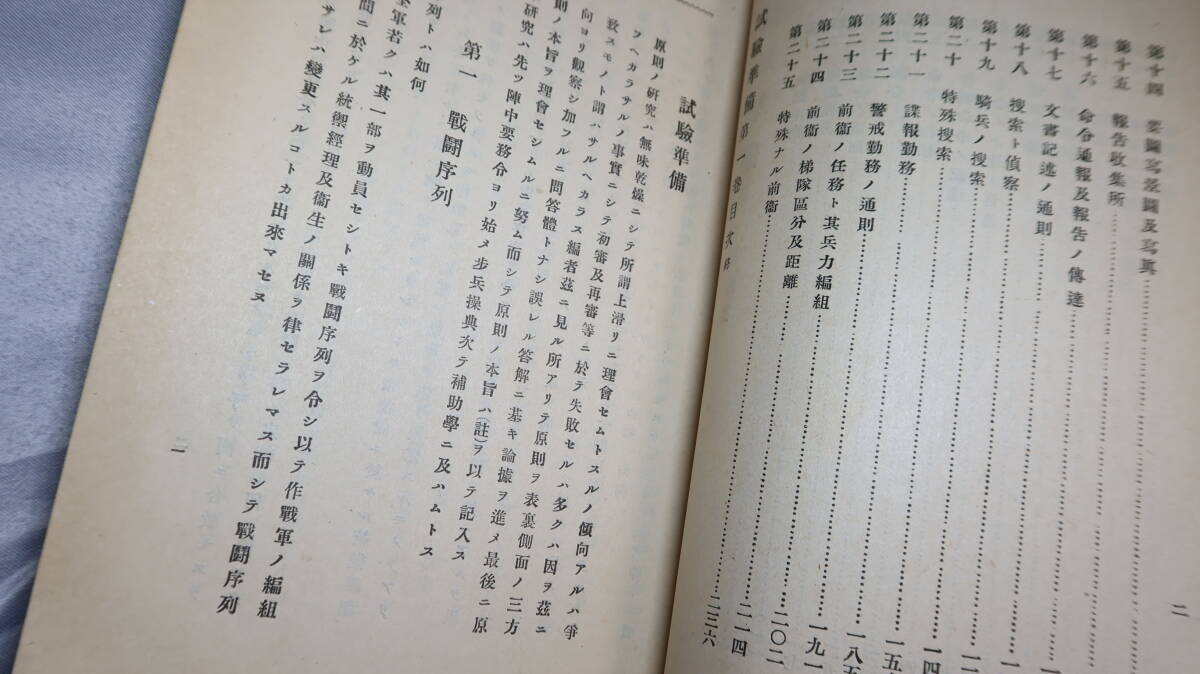 第十四 要圖寫景圖及寫眞
第十五 報告收集所
第十六 命令通報及報告ノ傳達
第十七 文書記述ノ通則
第十八 搜索ト偵察
第十九 騎兵ノ搜索
第二十 特殊搜索
第二十一 諜報勤務
第二十二 警戒勤務ノ通則
第二十三 前衞ノ任務ト其兵力編組
第二十四 前衞ノ梯隊區分及距離
第二十五 特殊ナル前衞
試驗準備第一卷目次終
一三六
二一四
二〇二
一九一
一八五
二
試驗準備
原則ノ研究ハ無味乾燥ニシテ所謂上滑リニ理會セムトスルノ傾向アルハ爭
フヘカラサルノ事實ニシテ初審及再審等ニ於テ失敗セルハ多クハ因ヲ茲ニ
致スモノト謂ハサルヘカラス編者茲ニ見ル所アリテ原則ヲ表裏側面ノ三方
向ヨリ觀察シ加フルニ問答體トナシ誤レル答解ニ基キ論據ヲ進メ最後ニ原
則ノ本旨ヲ理會セシムルニ努ム而シテ原則ノ本旨ハ(註)ヲ以テ記入ス
研究ハ先ツ陣中要務令ヨリ始メ步兵操典次テ補助學ニ及ハムトス
第一 戰鬪序列
列トハ如何
全軍若クハ其一部ヲ動員セシトキ戰鬪序列ヲ令シ以テ作戰軍ノ編組
間ニ於ケル統禦經理及衞生ノ關係ヲ律セラレマス而シテ戰鬪序列
サレハ變更スルコトカ出來マセヌ
一